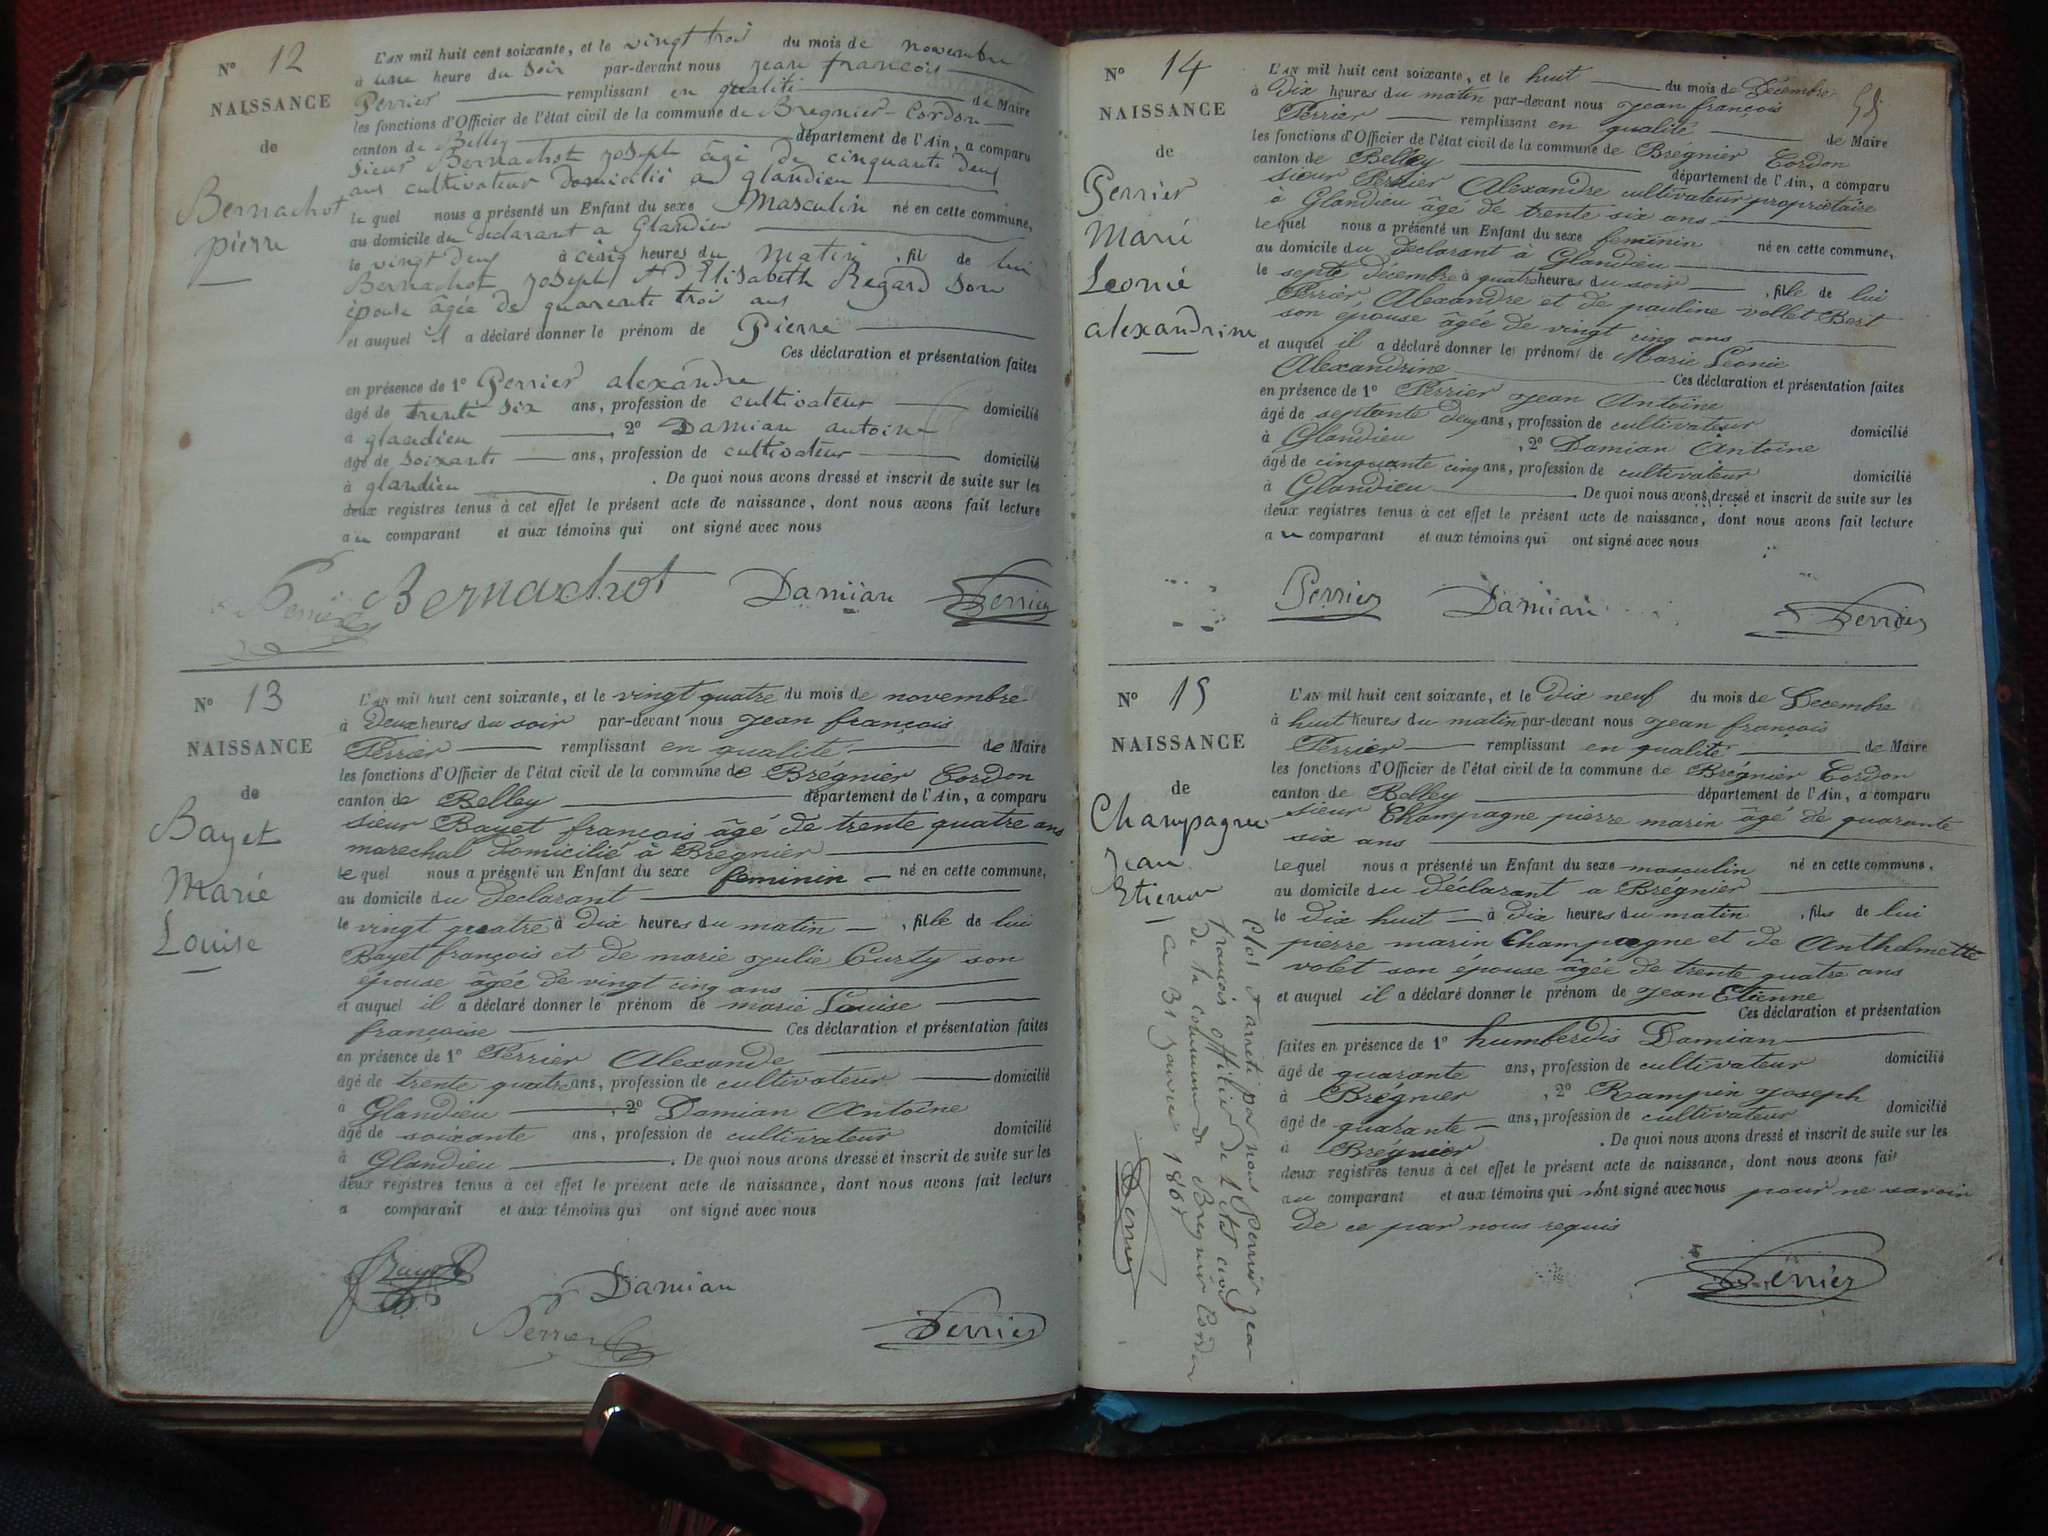 N° 12
NAISSANCE
de
Bernachot
pierre
L'AN mil huit cent soixante, et le vingt trois du mois de novembre
à une heure du soir par-devant nous jean françois
Perrier remplissant en qualité de Maire
les fonctions d'Officier de l'état civil de la commune de Bregnier-Cordon
canton de Belley département de l'Ain, a comparu
sieur Bernachot joseph âgé de cinquante deux
ans cultivateur domicilié a glandieu
le quel nous a présenté un Enfant du sexe Masculin né en cette commune,
au domicile du declarant a Glandieu
le vingt deux à cinq heures du Matin, fil de lui
Bernachot joseph et d'Elisabeth Regard son
épouse âgée de quarente trois ans
et auquel il a déclaré donner le prénom de Pierre
Ces déclaration et présentation faites
en présence de 1° Perrier alexandre
âgé de trente six ans, profession de cultivateur domicilié
à glandieu, 2° Damian antoine
âgé de soixante ans, profession de cultivateur domicilié
à glandieu. De quoi nous avons dressé et inscrit de suite sur les
deux registres tenus à cet effet le présent acte de naissance, dont nous avons fait lecture
au comparant et aux témoins qui ont signé avec nous
Perrier Bernachot Damian Perrier
N° 13
NAISSANCE
de
Bayet
Marie
Louise
L'AN mil huit cent soixante, et le vingt quatre du mois de novembre
à Deux heures du soir par-devant nous jean françois
Perrier remplissant en qualité de Maire
les fonctions d'Officier de l'état civil de la commune de Brégnier Cordon
canton de Belley département de l'Ain, a comparu
sieur Bayet françois âgé de trente quatre ans
marechal domicilié à Bregnier
le quel nous a présenté un Enfant du sexe feminin né en cette commune,
au domicile du Declarant
le vingt quatre à Dix heures du matin, fille de lui
Bayet françois et de marie julie Curty son
épouse âgée de vingt cinq ans
et auquel il a déclaré donner le prénom de marie Louise
françoise Ces déclaration et présentation faites
en présence de 1° Perrier Alexande
âgé de trente quatre ans, profession de cultivateur domicilié
à Glandieu, 2° Damian Antoine
âgé de soixante ans, profession de cultivateur domicilié
à Glandieu. De quoi nous avons dressé et inscrit de suite sur les
deux registres tenus à cet effet le présent acte de naissance, dont nous avons fait lecture
a comparant et aux témoins qui ont signé avec nous
Bayet Damian
Perrier Perrier
N° 14
NAISSANCE
de
Perrier
Marie
Leonie
alexandrine
L'AN mil huit cent soixante, et le huit du mois de Décembre
à Dix heures du matin par-devant nous jean françois
Perrier remplissant en qualité de Maire
les fonctions d'Officier de l'état civil de la commune de Brégnier Cordon
canton de Belley département de l'Ain, a comparu
sieur Perrier Alexandre cultivateur propriétaire
à Glandieu âgé de trente six ans
le quel nous a présenté un Enfant du sexe feminin né en cette commune,
au domicile du Declarant à Glandieu
le sept décembre à quatre heures du soir, fille de lui
Perrier, Alexandre et de pauline vollet Bert
son épouse âgée de vingt cinq ans
et auquel il a déclaré donner les prénoms de Marie Léonie
Alexandrine Ces déclaration et présentation faites
en présence de 1° Perrier jean Antoine
âgé de septante deux ans, profession de cultivateur domicilié
à Glandieu, 2° Damian Antoine
âgé de cinquante cinq ans, profession de cultivateur domicilié
à Glandieu. De quoi nous avons dressé et inscrit de suite sur les
deux registres tenus à cet effet le présent acte de naissance, dont nous avons fait lecture
au comparant et aux témoins qui ont signé avec nous
Perrier Damian Perrier
N° 15
NAISSANCE
de
Champagne
jean
Etienne
L'AN mil huit cent soixante, et le Dix neuf du mois de Decembre
à huit heures du matin par-devant nous jean françois
Perrier remplissant en qualité de Maire
les fonctions d'Officier de l'état civil de la commune de Brégnier Cordon
canton de Belley département de l'Ain, a comparu
sieur Champagne pierre marin âgé de quarante
six ans
le quel nous a présenté un Enfant du sexe masculin né en cette commune,
au domicile du déclarant a Brégnier
le dix huit à dix heures du matin, fils de lui
pierre marin Champagne et de Anthelmette
volet son épouse âgée de trente quatre ans
et auquel il a déclaré donner le prénom de jean Etienne
Ces déclaration et présentation
faites en présence de 1° humberdis Damian
âgé de quarante ans, profession de cultivateur domicilié
à Brégnier, 2° Rampin joseph
âgé de quarante ans, profession de cultivateur domicilié
à Brégnier. De quoi nous avons dressé et inscrit de suite sur les
deux registres tenus à cet effet le présent acte de naissance, dont nous avons fait
au comparant et aux témoins qui n'ont signé avec nous pour ne savoir
de ce par nous requis
Perrier
Clos et arreté par nous Perrier jean
françois officier de l'état civil
de la commune de Bregnier Cordon
ce 31 janvier 1861
Perrier